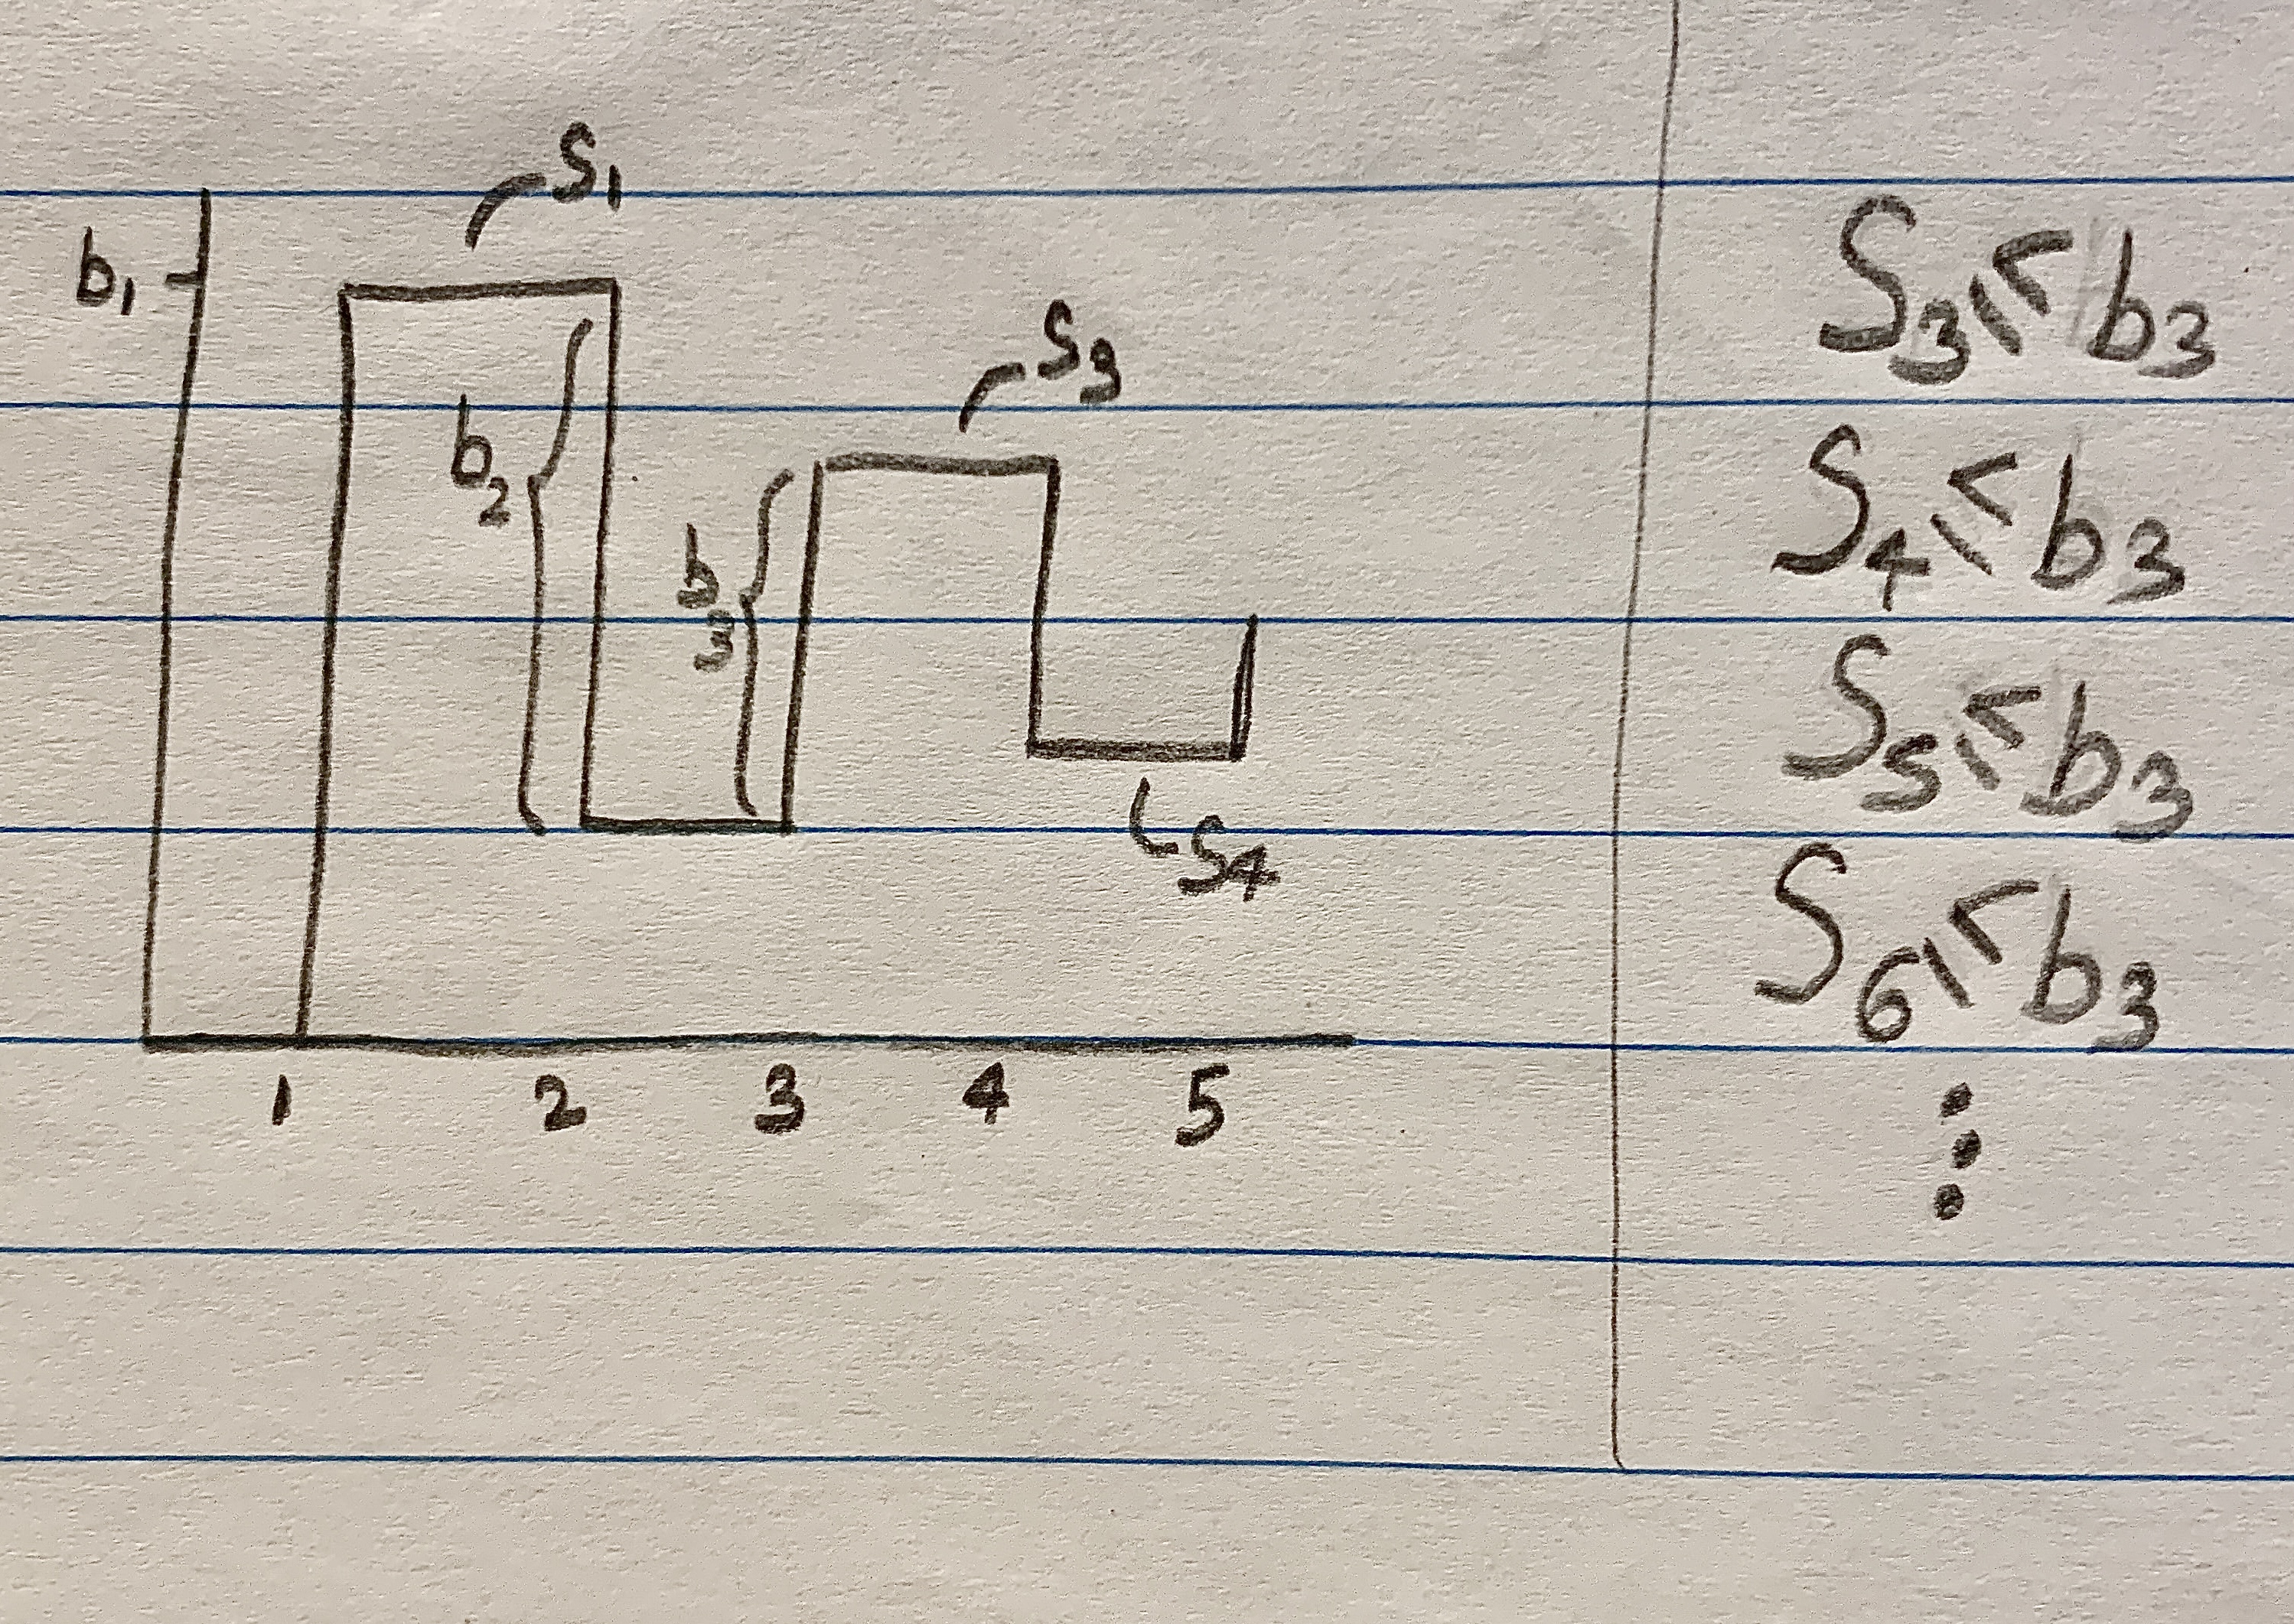 S₁
b₁
S₃
b₂
b₃
S₄
1 2 3 4 5
S₃ ≤ b₃
S₄ ≤ b₃
S₅ ≤ b₃
S₆ ≤ b₃
⋮